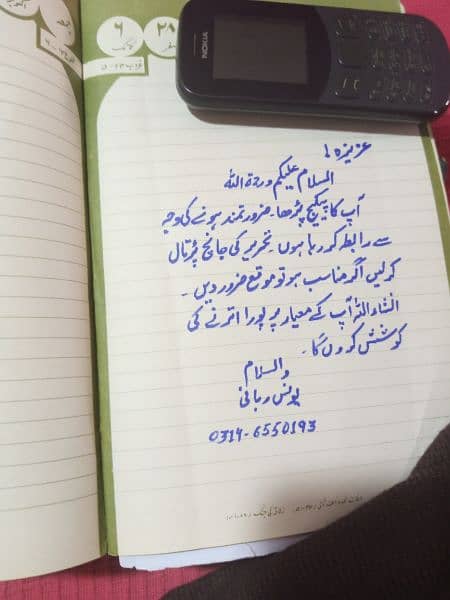 ۲۸
صفر
۶
NOKIA
عزیزہ!
السلام علیکم ورحمۃ اللہ
آپ کا پیکیج پڑھا۔ ضرورتمند ہونے کی وجہ
سے رابطہ کر رہا ہوں۔ تحریر کی جانچ پڑتال
کرلیں اگر مناسب ہو تو موقع ضرور دیں۔
انشاء اللہ آپ کے معیار پر پورا اترنے کی
کوشش کروں گا۔
والسلام
یونس ربانی
0314-6550193